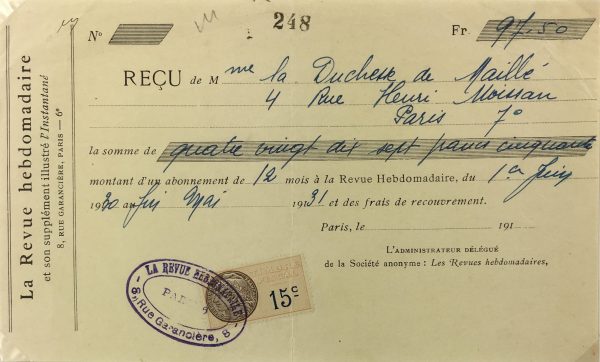 La Revue hebdomadaire
et son supplément illustré l'Instantané
8, RUE GARANCIÈRE, PARIS — 6e
248
No
Fr. 97.50
REÇU de Mme la Duchesse de Maillé
4 Rue Henri Moissan
Paris 7°
la somme de quatre vingt dix sept francs cinquante
montant d'un abonnement de 12 mois à la Revue Hebdomadaire, du 1er Juin
1930 au fin Mai 1931 et des frais de recouvrement.
Paris, le 191
L'ADMINISTRATEUR DÉLÉGUÉ
de la Société anonyme : Les Revues hebdomadaires,
LA REVUE HEBDOMADAIRE
PARIS
8, Rue Garancière, 8
15c